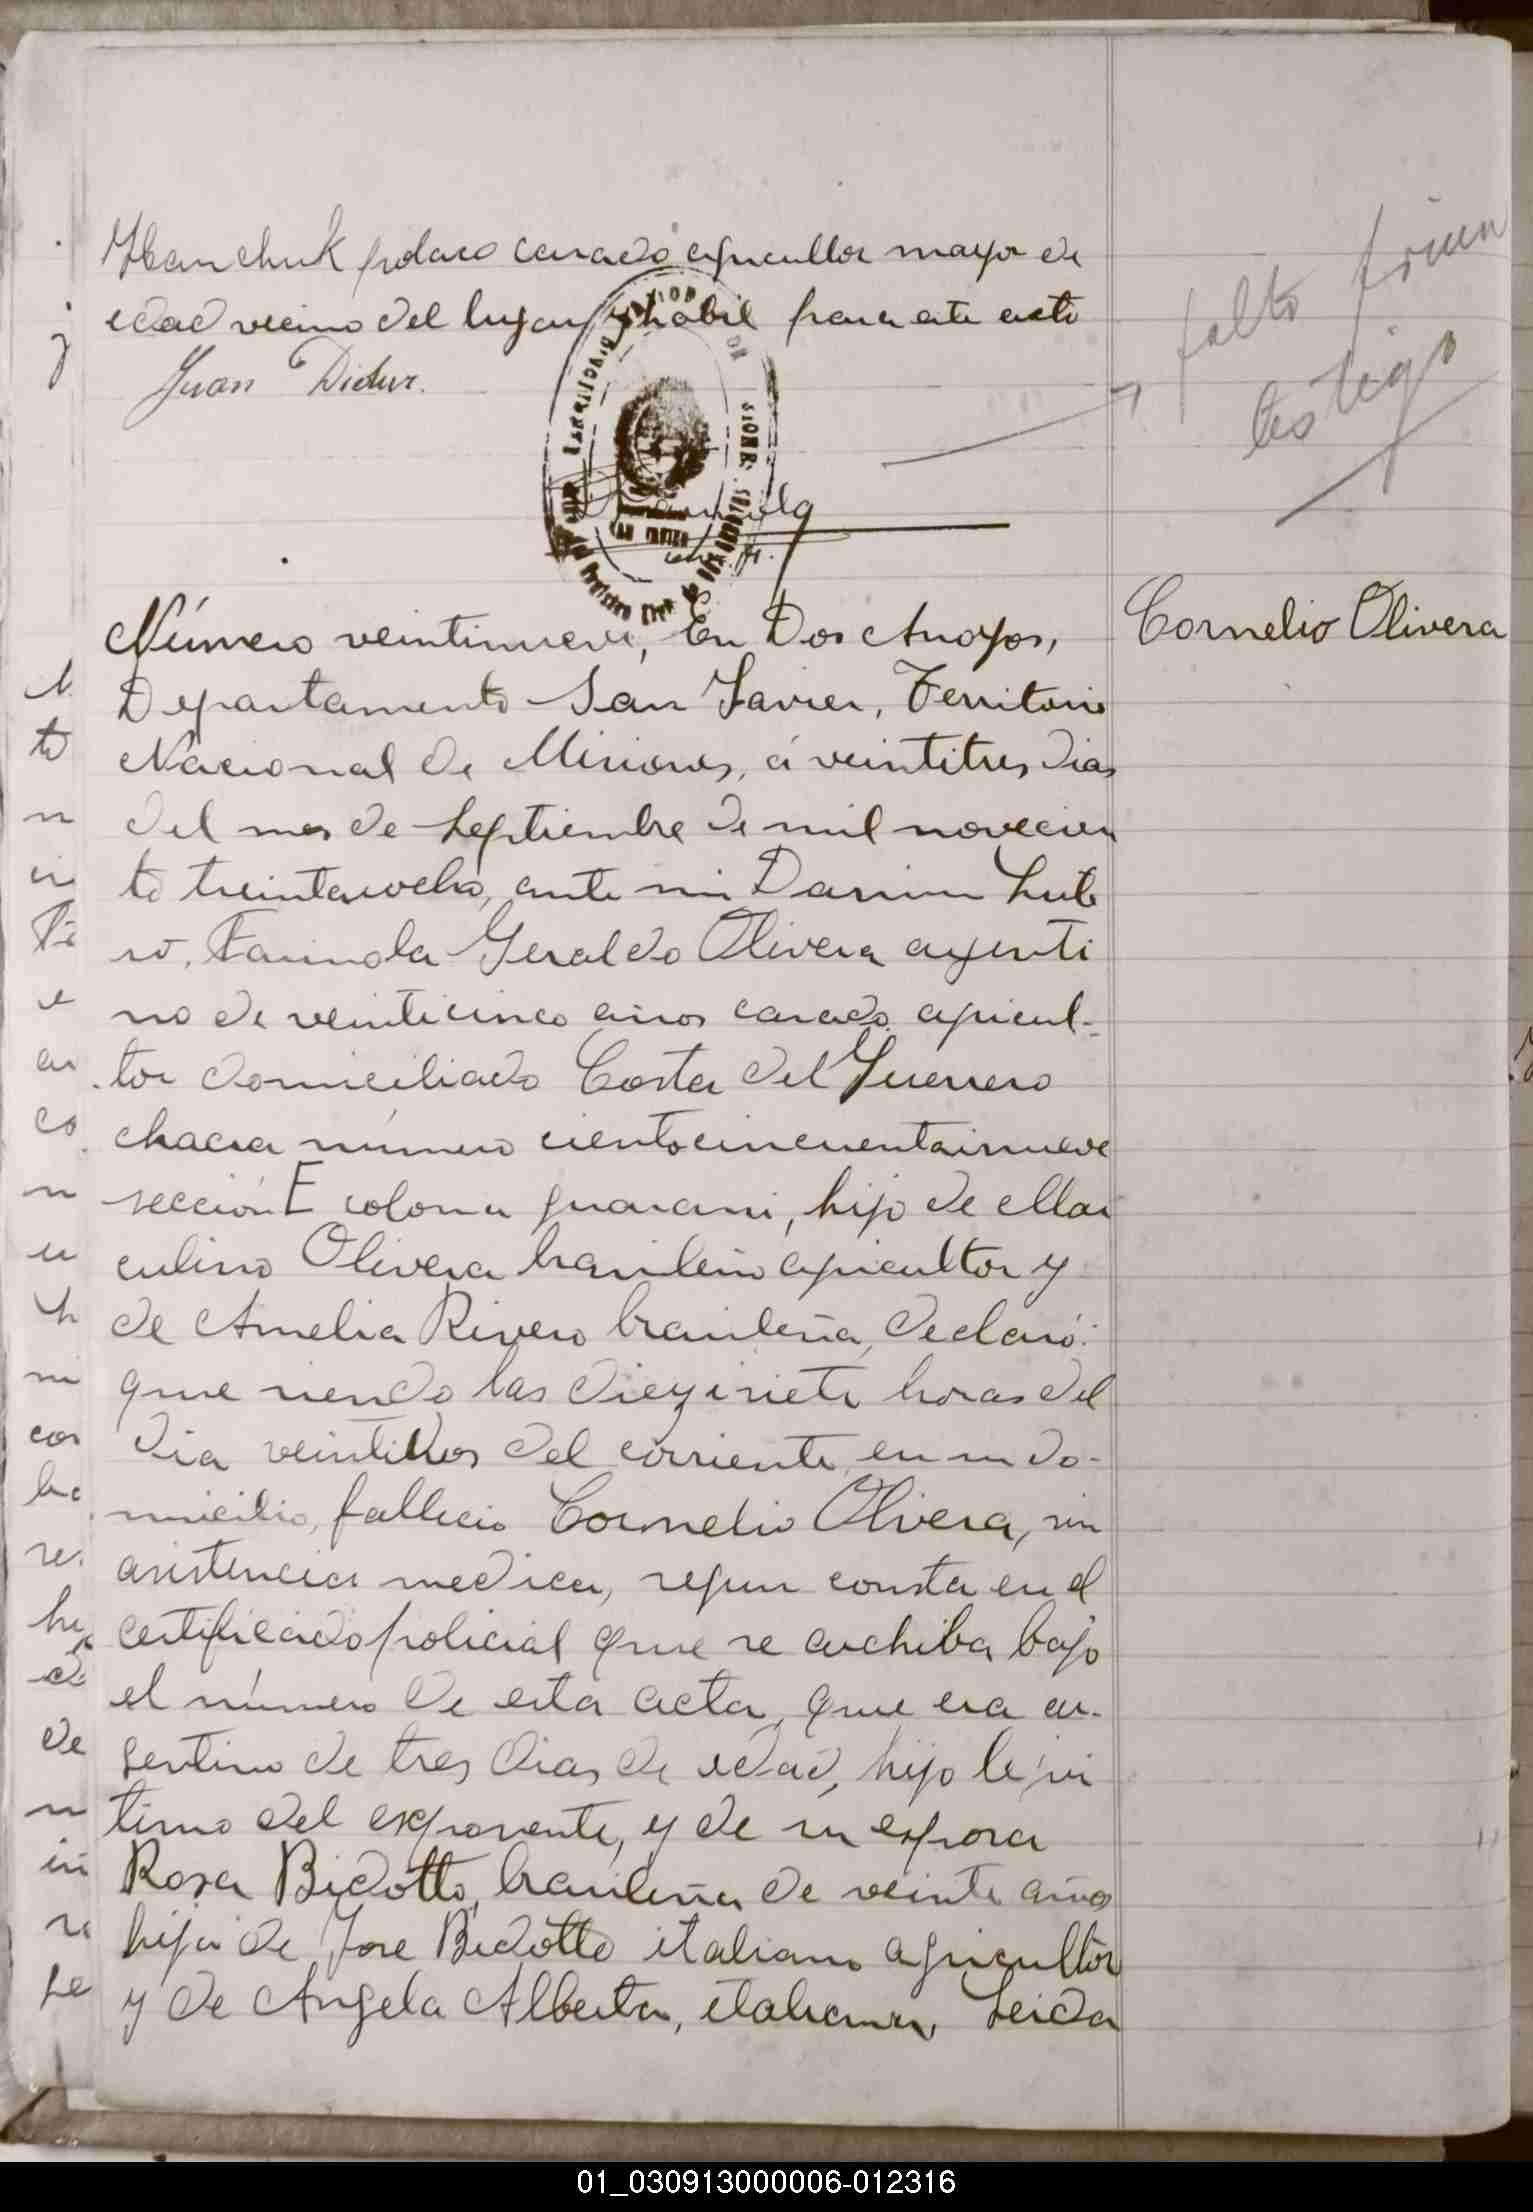 polaco casado agricultor mayor de
edad vecino del lugar y habil para este acto
Juan Didur.
falta firma
testigo
Número veintinueve, En Dos Arroyos,
Cornelio Olivera
Departamento San Javier, Territorio
Nacional de Misiones, á veintitres dias
del mes de Septiembre de mil novecien
to treintaiocho, ante mi
Geraldo Olivera argenti
no de veinticinco años casado agricul-
tor domiciliado Costa del Guerrero
chacra número cientocincuentainueve
sección E colonia guarani, hijo de Mar
culino Olivera brasileño agricultor y
de Amelia Rivero brasileña, declaró:
que siendo las diezisiete horas del
dia veintidos del corriente en su do-
micilio, fallecio Cornelio Olivera, sin
asistencia medica, segun consta en el
certificado policial que se archiba bajo
el número de esta acta, que era ar-
gentino de tres dias de edad, hijo legi
timo del exponente, y de su esposa
Rosa Bidotto, brasileña de veinte años
hija de Jose Bidotto italiano agricultor
y de Angela Alberta, italiana, Leida
01_030913000006-012316